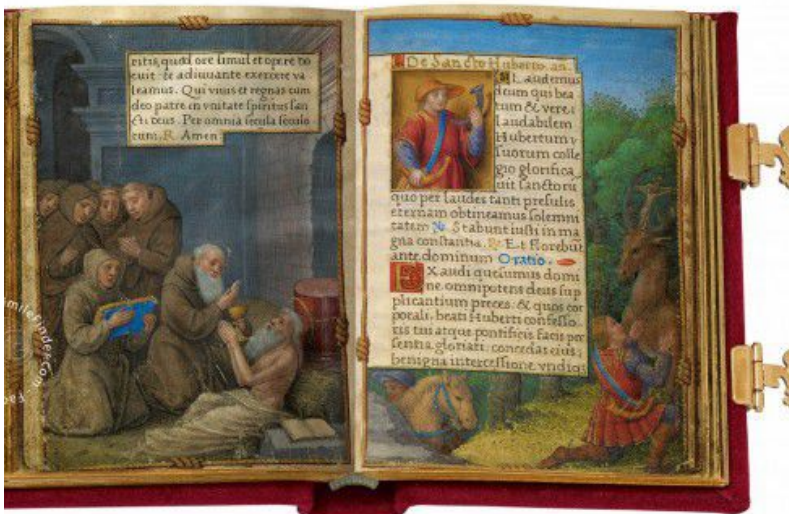 ritis, quod ore simul et opere do
cuit te adiuuante exercere va
leamus. Qui viuis et regnas cum
deo patre in vnitate spiritus san
cti deus. Per omnia secula seculo
rum. R. Amen.
De Sancto Huberto. an.
Laudemus
deum qui bea
tum & vere
laudabilem
Hubertum
suorum colle
gio glorifica
uit sanctorū
quo per laudes tanti presulis,
eternam obtineamus solemni
tatem. Stabunt iusti in ma
gna constantia. Et florebūt
ante dominum Oratio.
Exaudi quesumus domi
ne omnipotens deus sup
plicantium preces: & quos cor
porali, beati Huberti confesso
ris tui atque pontificis facis pre
sentia gloriari: concedas eius
benigna intercessione vndiq